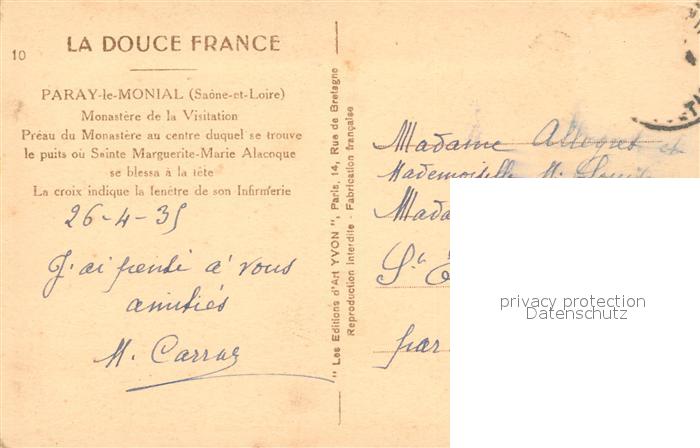 10
LA DOUCE FRANCE
PARAY-le-MONIAL (Saône-et-Loire)
Monastère de la Visitation
Préau du Monastère au centre duquel se trouve
le puits où Sainte Marguerite-Marie Alacoque
se blessa à la tête
La croix indique la fenêtre de son Infirmerie
26-4-35
J'ai pensé à vous
amitiés
M. Carraz
"Les Editions d'Art YVON", Paris, 14, Rue de Bretagne
Reproduction Interdite - Fabrication française
Madame et
Mademoiselle M.
Mada
St. E
par
privacy protection
Datenschutz